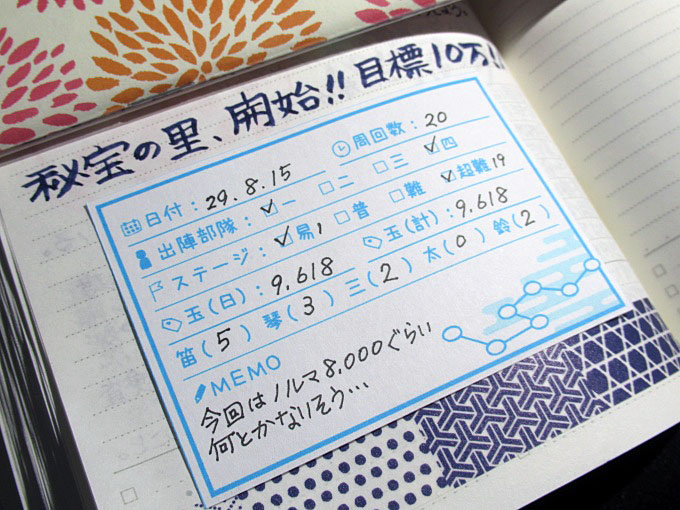 秘宝の里、開始!! 目標10万!
日付：29.8.15 周回数：20
出陣部隊：☑一 □二 □三 ☑四
ステージ：☑易1 □普 □難 ☑超難19
玉(日)：9,618 玉(計)：9,618
笛(5) 琴(3) 三(2) 太(0) 鈴(2)
MEMO
今回はノルマ8,000ぐらい
何とかなりそう…